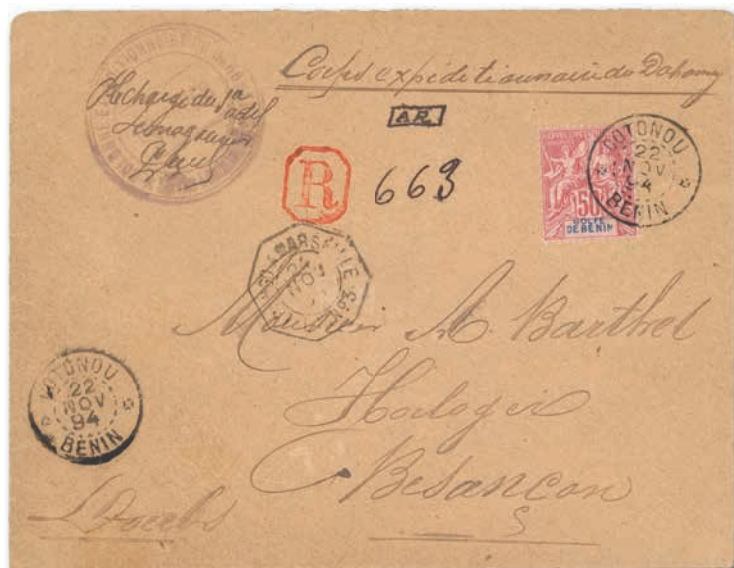 Corps expéditionnaire du Dahomey
Le chargé du
AR
R 663
COTONOU
22
NOV
94
BENIN
50
GOLFE
DE BENIN
MARSEILLE
NOV
No3
Monsieur A. Barthel
Horloger
Besançon
Doubs
COTONOU
22
NOV
94
BENIN